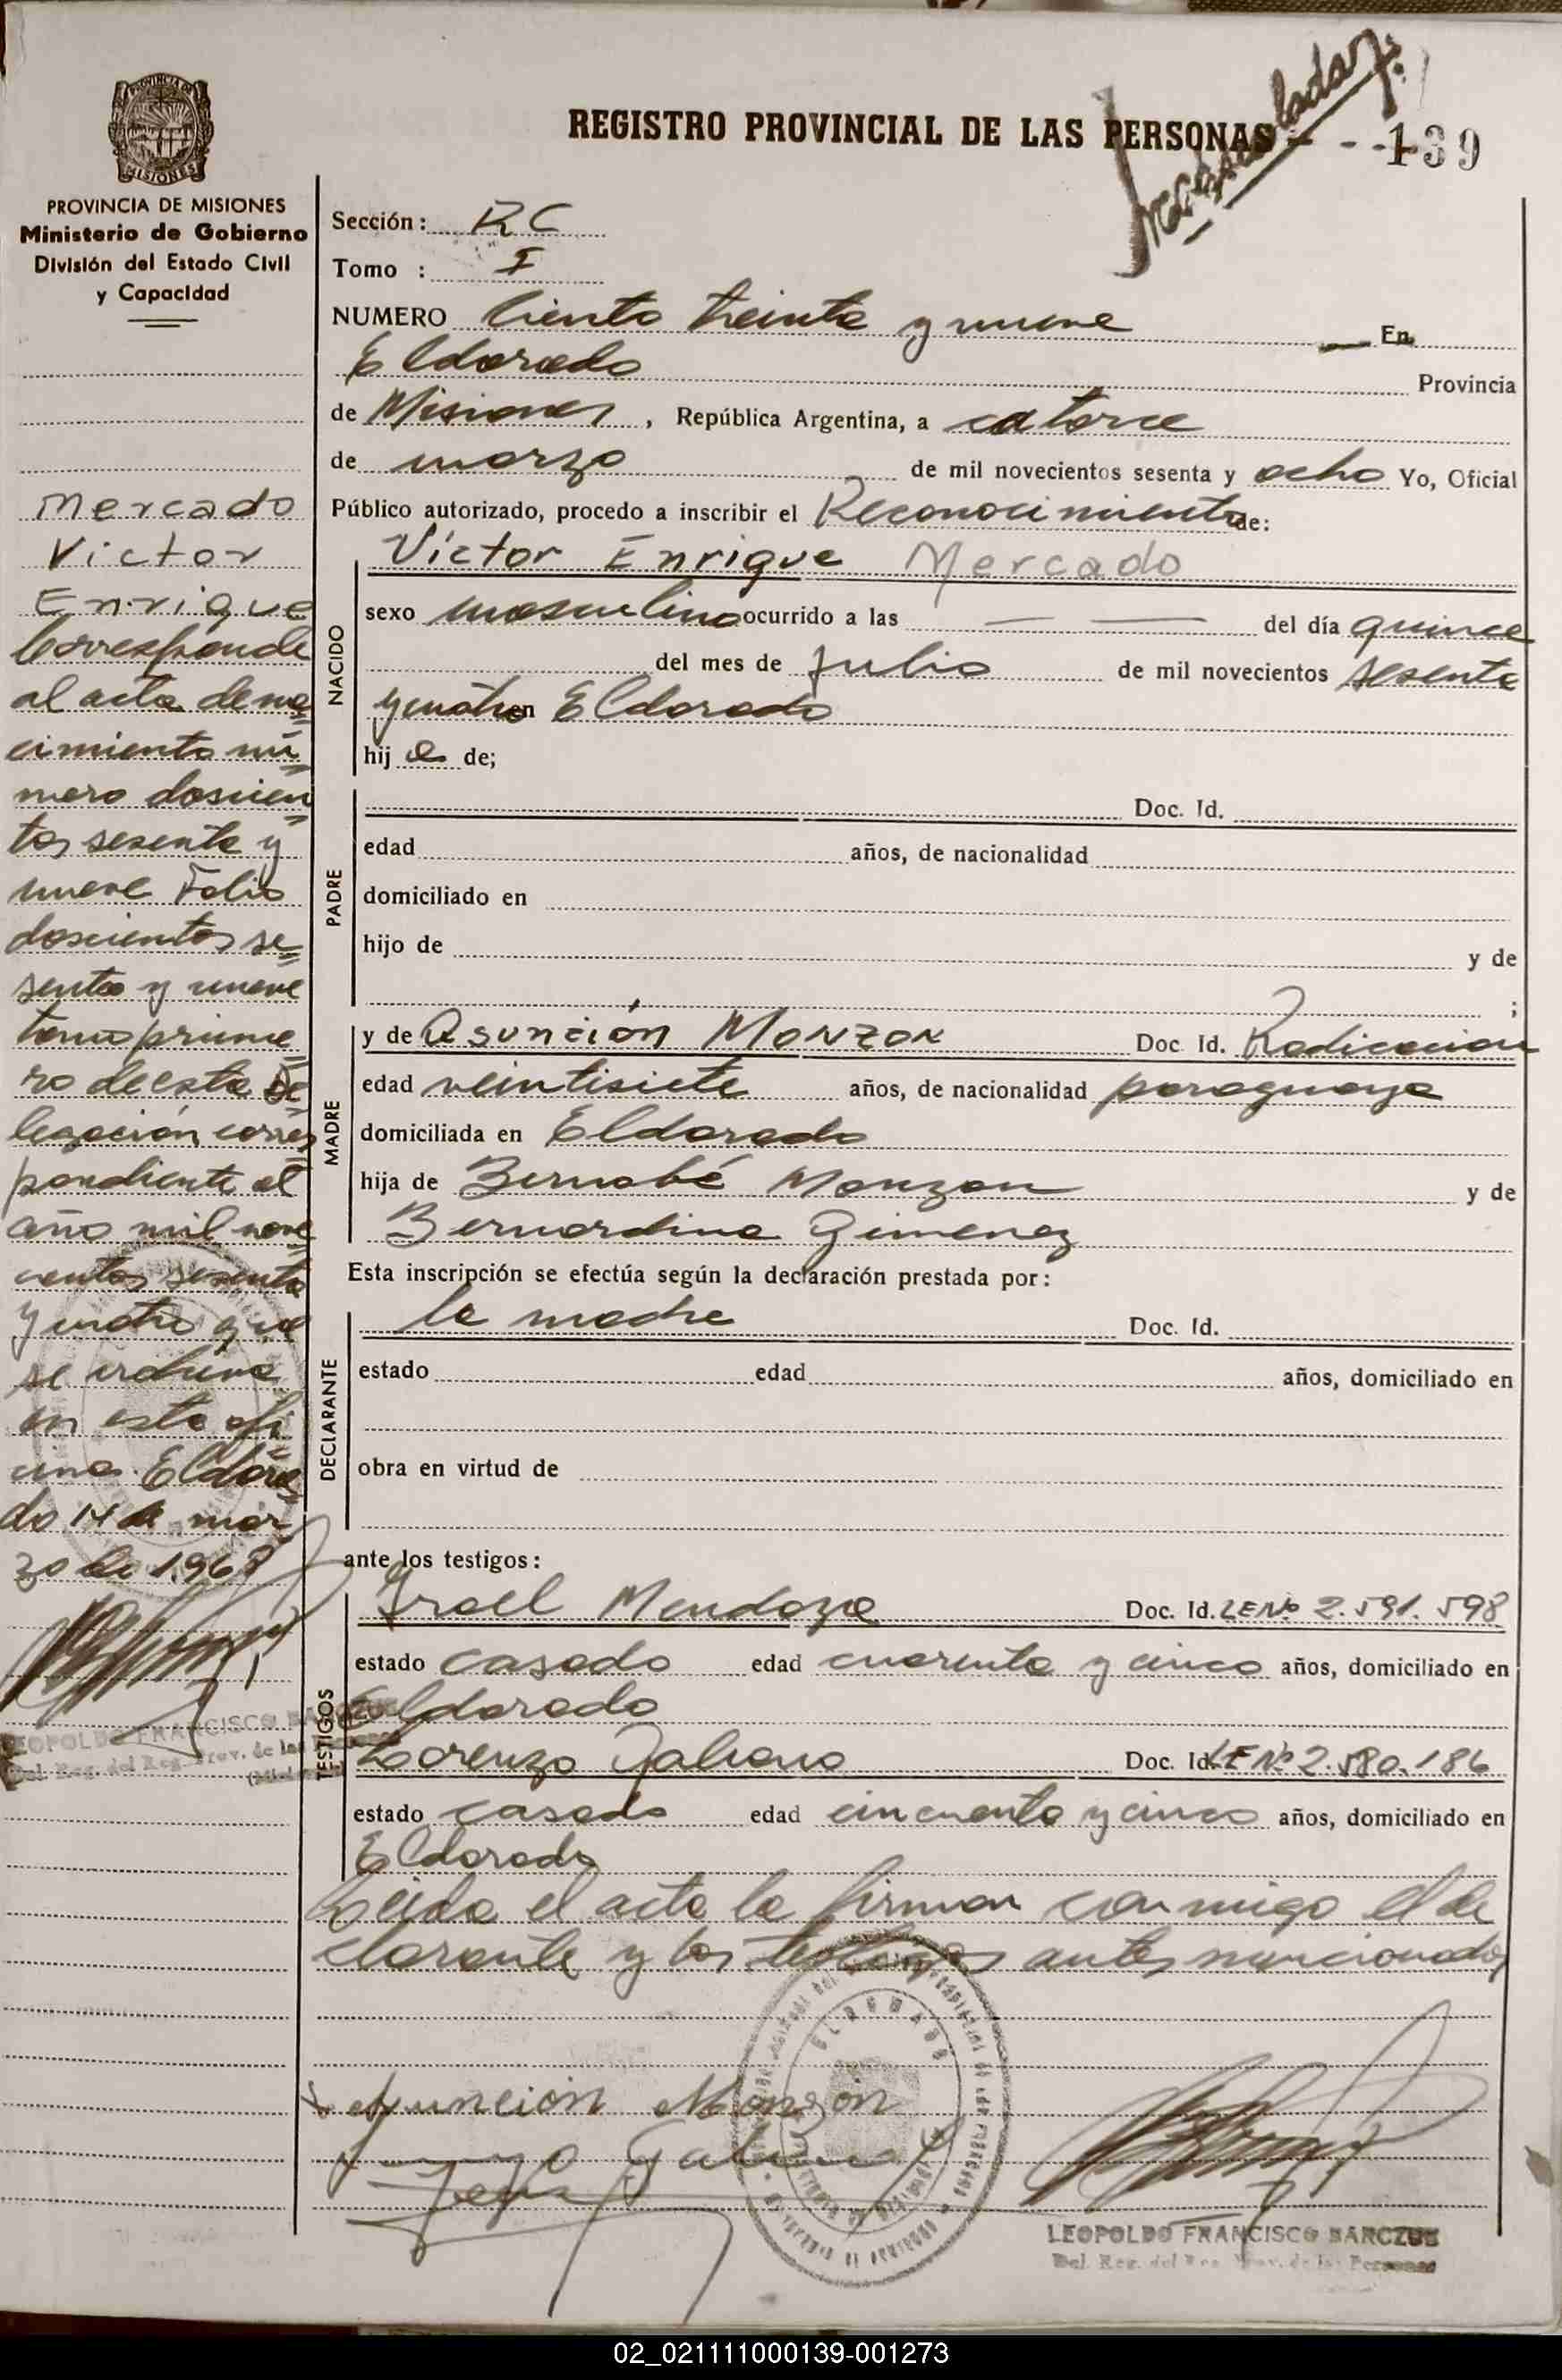 REGISTRO PROVINCIAL DE LAS PERSONAS
139
PROVINCIA DE MISIONES
Ministerio de Gobierno
División del Estado Civil
y Capacidad
Sección: RC
Tomo : I
NUMERO Ciento treinta y nueve En
Eldorado Provincia
de Misiones, República Argentina, a catorce
de marzo de mil novecientos sesenta y ocho Yo, Oficial
Público autorizado, procedo a inscribir el Reconocimiento de:
NACIDO
Víctor Enrique Mercado
sexo masculino ocurrido a las — — del día quince
del mes de Julio de mil novecientos sesenta
y cuatro en Eldorado
hijo de;
PADRE
Doc. Id.
edad años, de nacionalidad
domiciliado en
hijo de y de
;
MADRE
y de Asunción Monzon Doc. Id. Radicación
edad veintisiete años, de nacionalidad paraguaya
domiciliada en Eldorado
hija de Bernabé Monzon y de
Bernardina Gimenez
Esta inscripción se efectúa según la declaración prestada por:
DECLARANTE
la madre Doc. Id.
estado edad años, domiciliado en
obra en virtud de
ante los testigos:
TESTIGOS
Irael Mendoza Doc. Id. LE Nº 2.591.598
estado casado edad cuarenta y cinco años, domiciliado en
Eldorado
Lorenzo Galeano Doc. Id. LE Nº 2.580.186
estado casado edad cincuenta y cinco años, domiciliado en
Eldorado
Leída el acta la firman conmigo el de
clarante y los testigos antes mencionados
Asunción Monzón
LEOPOLDO FRANCISCO BARCZUK
Del. Reg. del Reg. Prov. de las Personas
Mercado
Victor
Enrique
Corresponde
al acta de na
cimiento nú
mero doscien
tos sesenta y
nueve Folio
doscientos se
senta y nueve
tomo prime
ro de esta De
legación corres
pondiente al
año mil nove
cientos sesenta
y cuatro que
se archiva
en esta ofi
cina. Eldora
do 14 de mar
zo de 1968
LEOPOLDO FRANCISCO BARCZUK
Del. Reg. del Reg. Prov. de las Personas
02_021111000139-001273